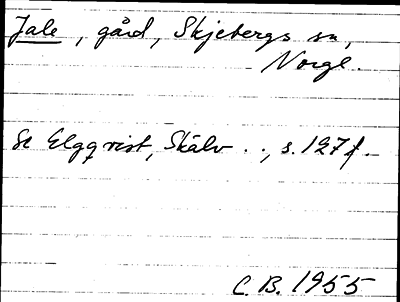 Jale, gård, Skjebergs sn,
Norge.
Se Elgqvist, Skälv . ., s. 127 f.
C. B. 1955